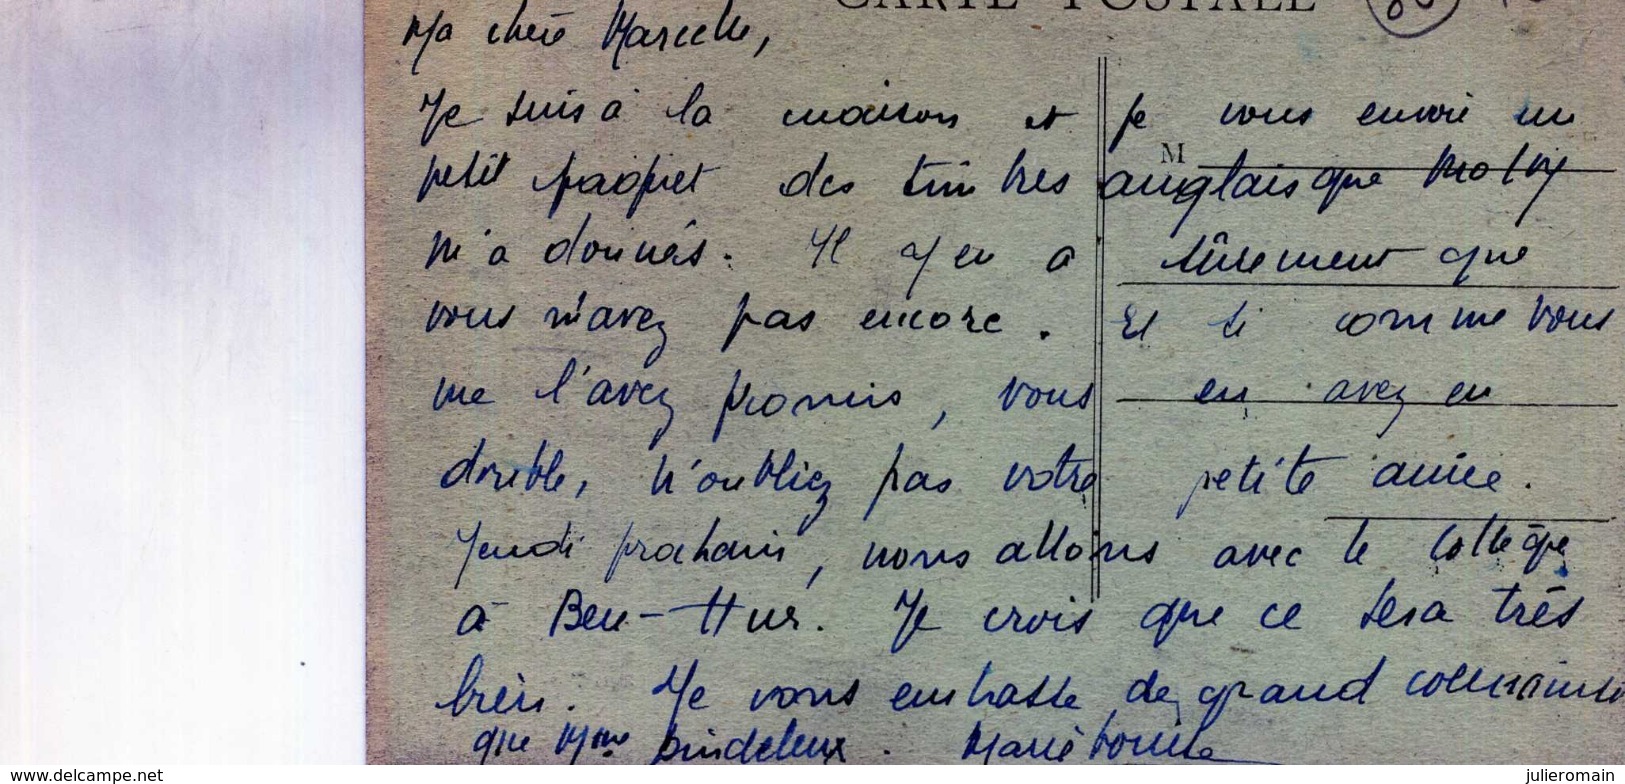 CARTE POSTALE
Ma chère Marcelle,
Je suis à la maison et je vous envoie un
M
petit paquet des timbres anglais que Molly
m'a donnés. Il y en a sûrement que
vous n'avez pas encore. Et si comme vous
me l'avez promis, vous en avez en
double, n'oubliez pas votre petite amie.
Jeudi prochain, nous allons avec le collège
à Ben-Hur. Je crois que ce sera très
bien. Je vous embrasse de grand
que Mme . Marie Louise
www.delcampe.net
julieromain